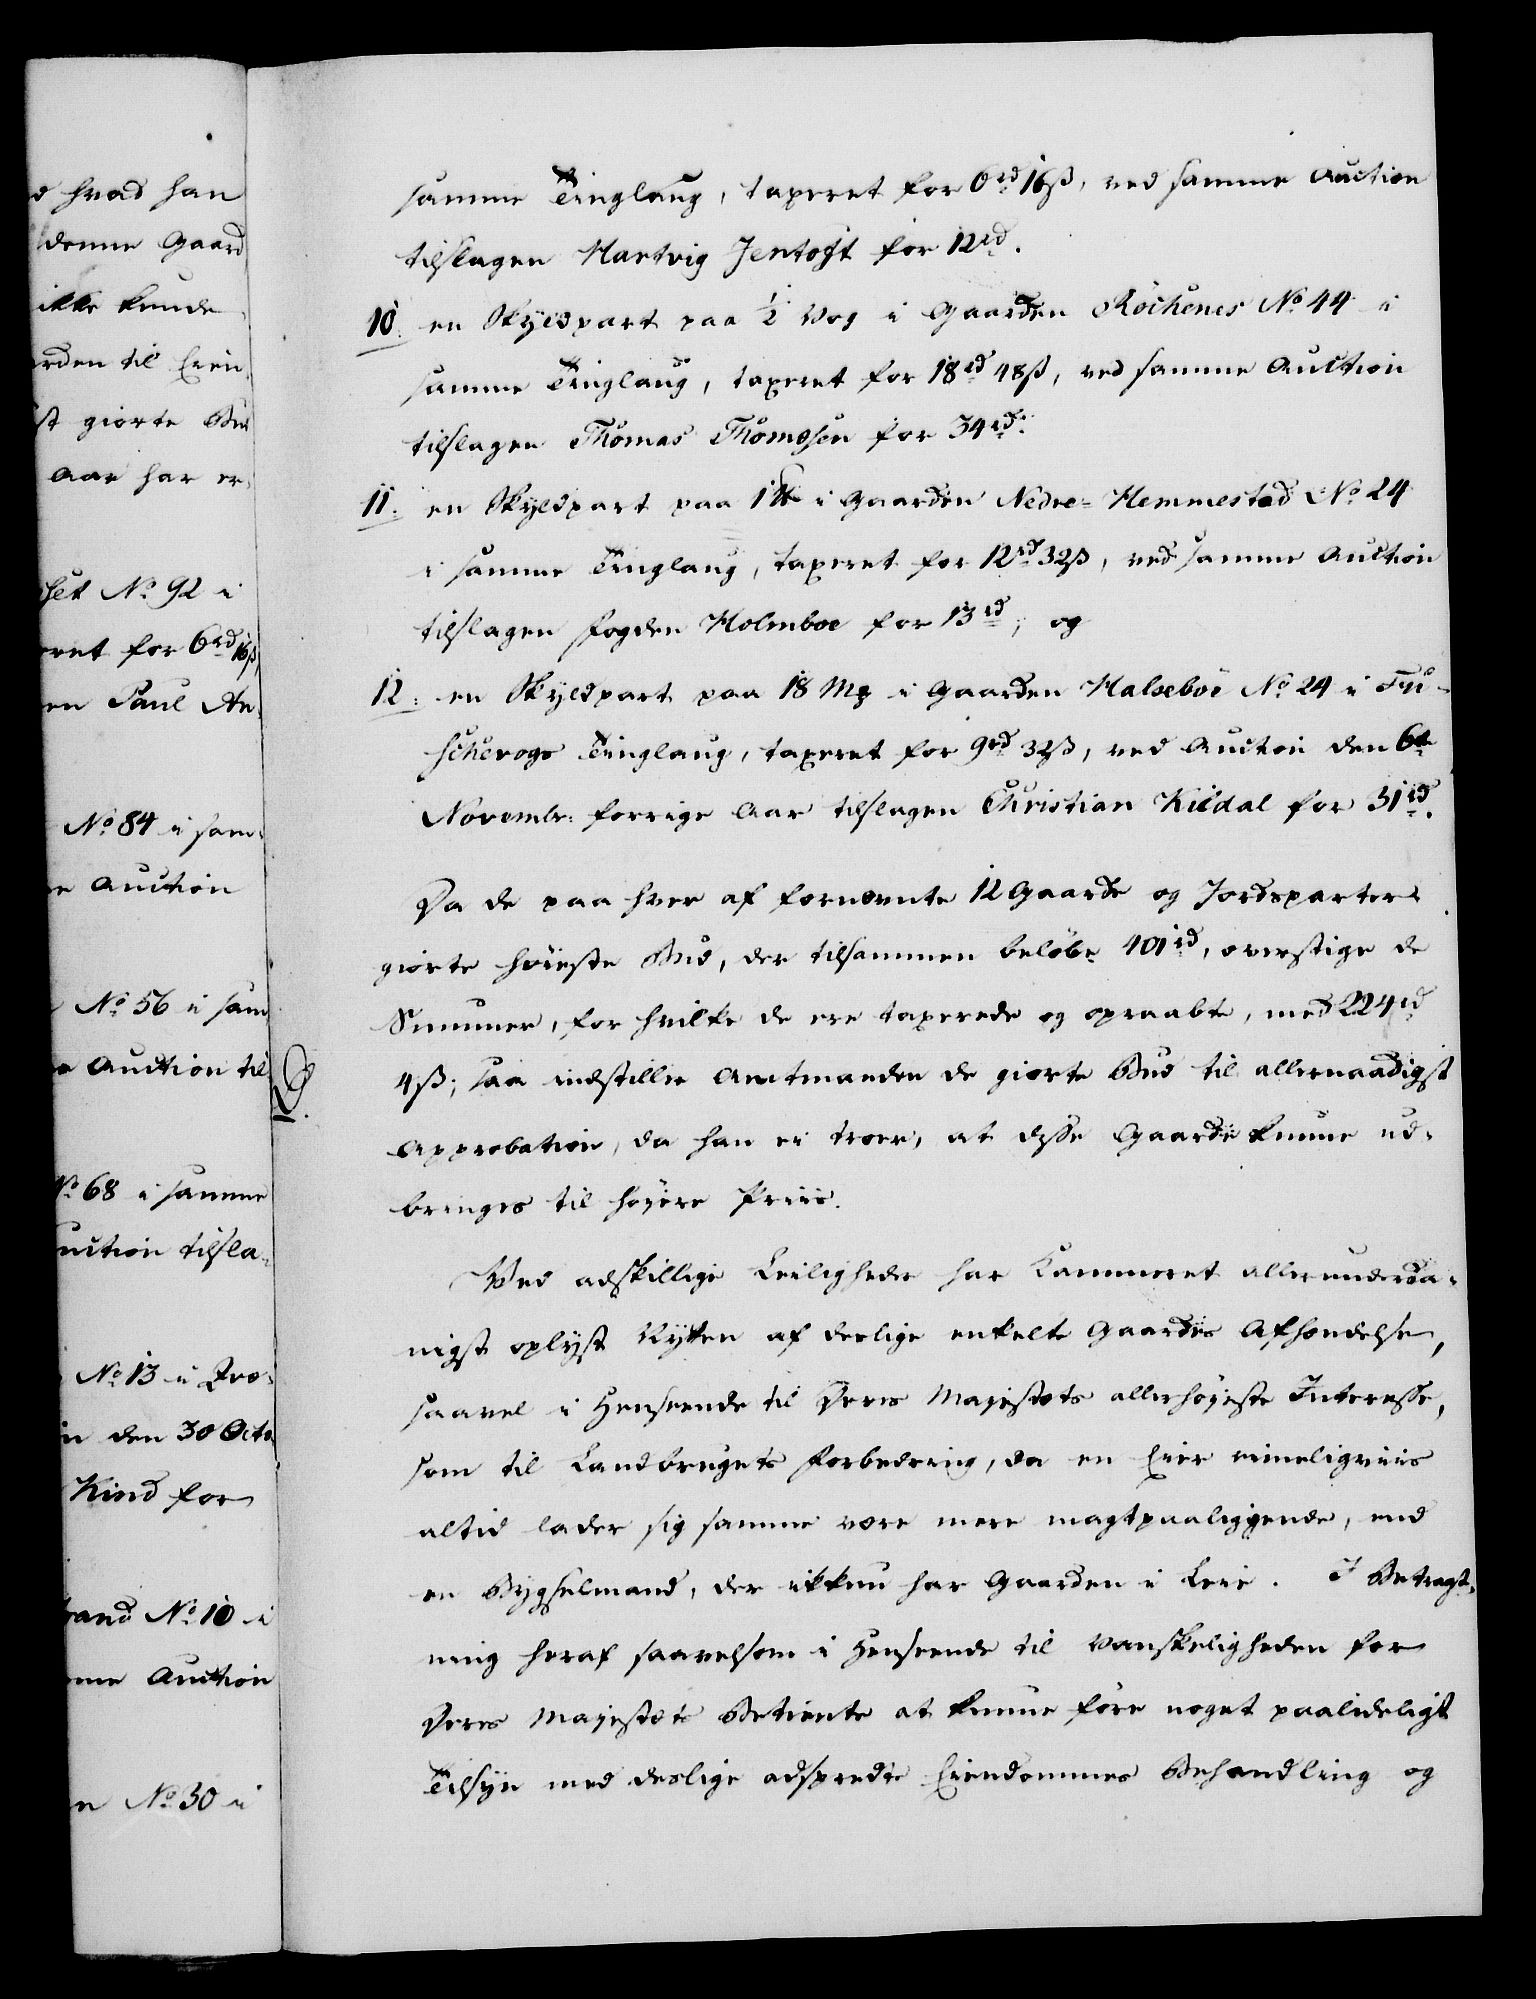 d hvad han
denne Gaard
ikke kunde
rden til Eien
st giorte Bud
Aar har er-
set No 92 i
eret for 6rd 16ß,
en Paul An-
No 84 i sam-
e Auction
No 56 i sam
e Auction til
No 68 i samme
uction tilsla-
No 13 i Qvæ-
in den 30 Octo
Kind for
rand No 10 i
mme Auction
n No 30 i
samme Tinglaug, taxeret for 6rd 16ß, ved samme Auction
tilslagen Hartvig Jentoft for 12rd.
10. en Skyldpart paa ½ Vog i Gaarden Röckenes No 44 i
samme Tinglaug, taxeret for 18rd 48ß, ved samme Auction
tilslagen Thomas Thomesen for 34rd.
11. en Skyldpart paa 1 ℔ i Gaarden Nedre-Hemmestad No 24
i samme Tinglaug, taxeret for 12rd 32ß, ved samme Auction
tilslagen Fogden Holmboe for 13rd; og
12. en Skyldpart paa 18 Mƶ i Gaarden Halseböe No 24 i Fu-
schevogs Tinglaug, taxeret for 9rd 32ß, ved Auction den 6te
Novembr: forrige Aar tilslagen Christian Kildal for 31rd.
Da de paa hver af fornevnte 12 Gaarde og Jordsparter
giorte høieste Bud, der tilsammen beløbe 401rd, overstige de
Summer, for hvilke de ere taxerede og opraabte, med 224rd
4ß; saa indstiller Amtmanden de giorte Bud til allernaadigst
Approbation, da han ei troer, at disse Gaarde kunne ud-
bringes til høiere Priis.
Ved adskillige Leiligheder har Kammeret allerunderda-
nigst oplyst Nytten af deslige enkelte Gaardes Afhændelse,
saavel i Henseende til Deres Majestæts allerhøieste Interesse,
som til Landbrugets Forbedring, da en Eier rimeligviis
altid lader sig samme være mere magtpaaliggende, end
en Bygselmand, der ikkun har Gaarden i Leie. I Betragt-
ning heraf saavelsom i Henseende til Vanskeligheden for
Deres Majestæts Betiente at kunne føre noget paalideligt
Tilsyn med deslige adspredte Eiendommes Behandling og